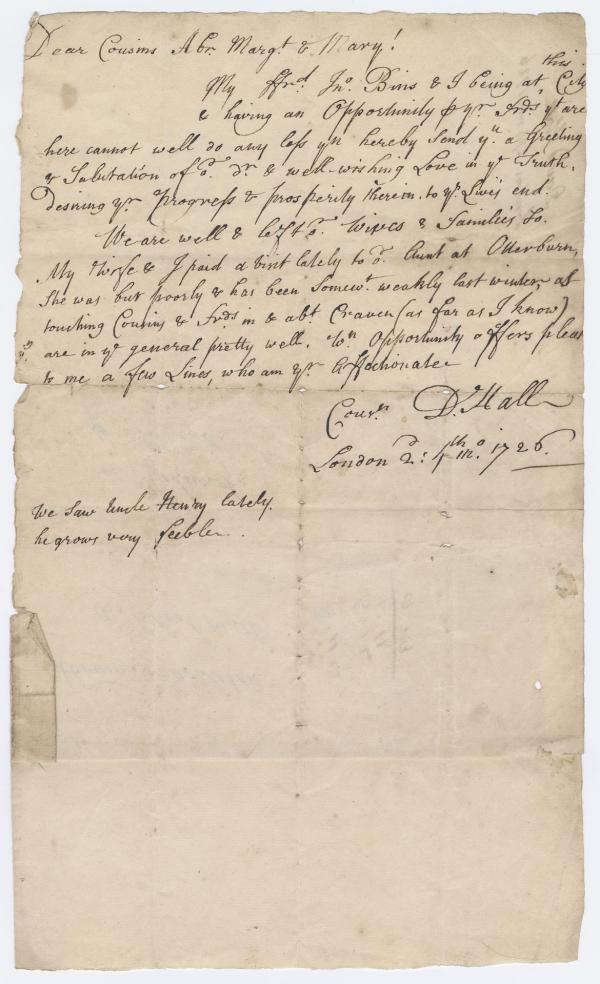 Dear Cousins Abr. Margt. & Mary!
this
My ffrd. Jno. Bins & I being at, City
& having an Opportunity p yr. Frds. yt are
here cannot well do any less yn hereby Send yu. a Greeting
& Salutation of or. dr. & well-wishing Love in ye Truth.
Desiring yr. Progress & prosperity therein to yr. Lives end.
We are well & left or. Wives & Families so.
My Wife & I paid a visit lately to or. Aunt at Otterburn,
She was but poorly & has been Somewt. weakly last winter, as
touching Cousins & Frds. in & abt. Craven (as far as I know)
are in ye general pretty well. Wn Opportunity offers please
to me a few Lines, who am yr. Affectionate
Cousn. D. Hall
London 2d: 4th mo. 1726.
We saw Uncle Henry lately.
he grows very feeble.